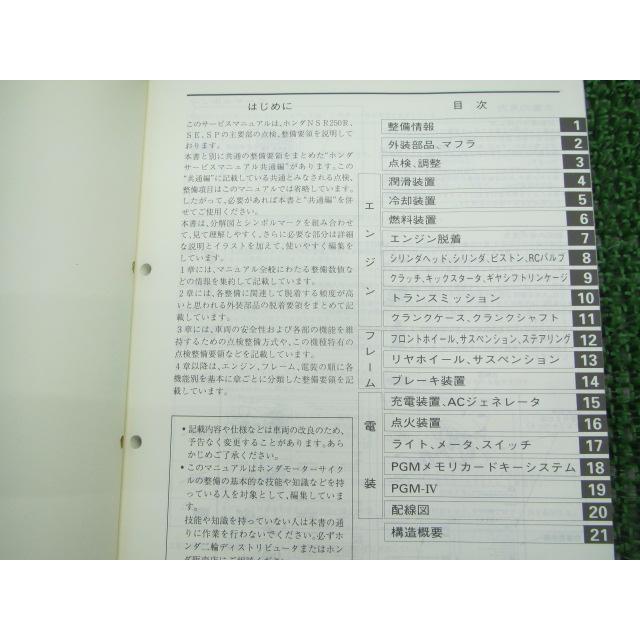 はじめに
このサービスマニュアルは、ホンダNSR250R、
SE、SPの主要部の点検、整備要領を説明して
おります。
本書と別に共通の整備要領をまとめた“ホンダ
サービスマニュアル共通編”があります。この
“共通編”に記載している共通とみなされる点検、
整備項目はこのマニュアルでは省略しています。
したがって、必要があれば本書と“共通編”を併
せてご使用ください。
本書は、分解図とシンボルマークを組み合わせ
て、見て理解しやすく、さらに必要な部分は詳細
な説明とイラストを加えて、使いやすく編集を
しています。
1章には、マニュアル全般にわたる整備数値な
どの情報を集約して記載しています。
2章には、各整備に関連して脱着する頻度が高い
と思われる外装部品の脱着要領をまとめて
記載しています。
3章には、車両の安全性および各部の機能を維
持するための点検整備方式や、この機種特有の
点検整備要領などを記載しています。
4章以降は、エンジン、フレーム、電装の順に各
機能別を基本に章ごとに分類した整備要領を記
載しています。
•記載内容や仕様などは車両の改良のため、
予告なく変更することがあります。あら
かじめご了承ください。
•このマニュアルはホンダモーターサイク
ルの整備の基本的な技能や知識などを持
っている人を対象として、編集していま
す。
技能や知識を持っていない人は本書の通
りに作業を行わないでください。必ずホ
ンダ二輪ディストリビュータまたはホン
目次
整備情報 1
外装部品、マフラ 2
点検、調整 3
エンジン
潤滑装置 4
冷却装置 5
燃料装置 6
エンジン脱着 7
シリンダヘッド、シリンダ、ピストン、RCバルブ 8
クラッチ、キックスタータ、ギヤシフトリンケージ 9
トランスミッション 10
クランクケース、クランクシャフト 11
フレーム
フロントホイール、サスペンション、ステアリング 12
リヤホイール、サスペンション 13
ブレーキ装置 14
電装
充電装置、ACジェネレータ 15
点火装置 16
ライト、メータ、スイッチ 17
PGMメモリカードキーシステム 18
PGM-IV 19
配線図 20
構造概要 21